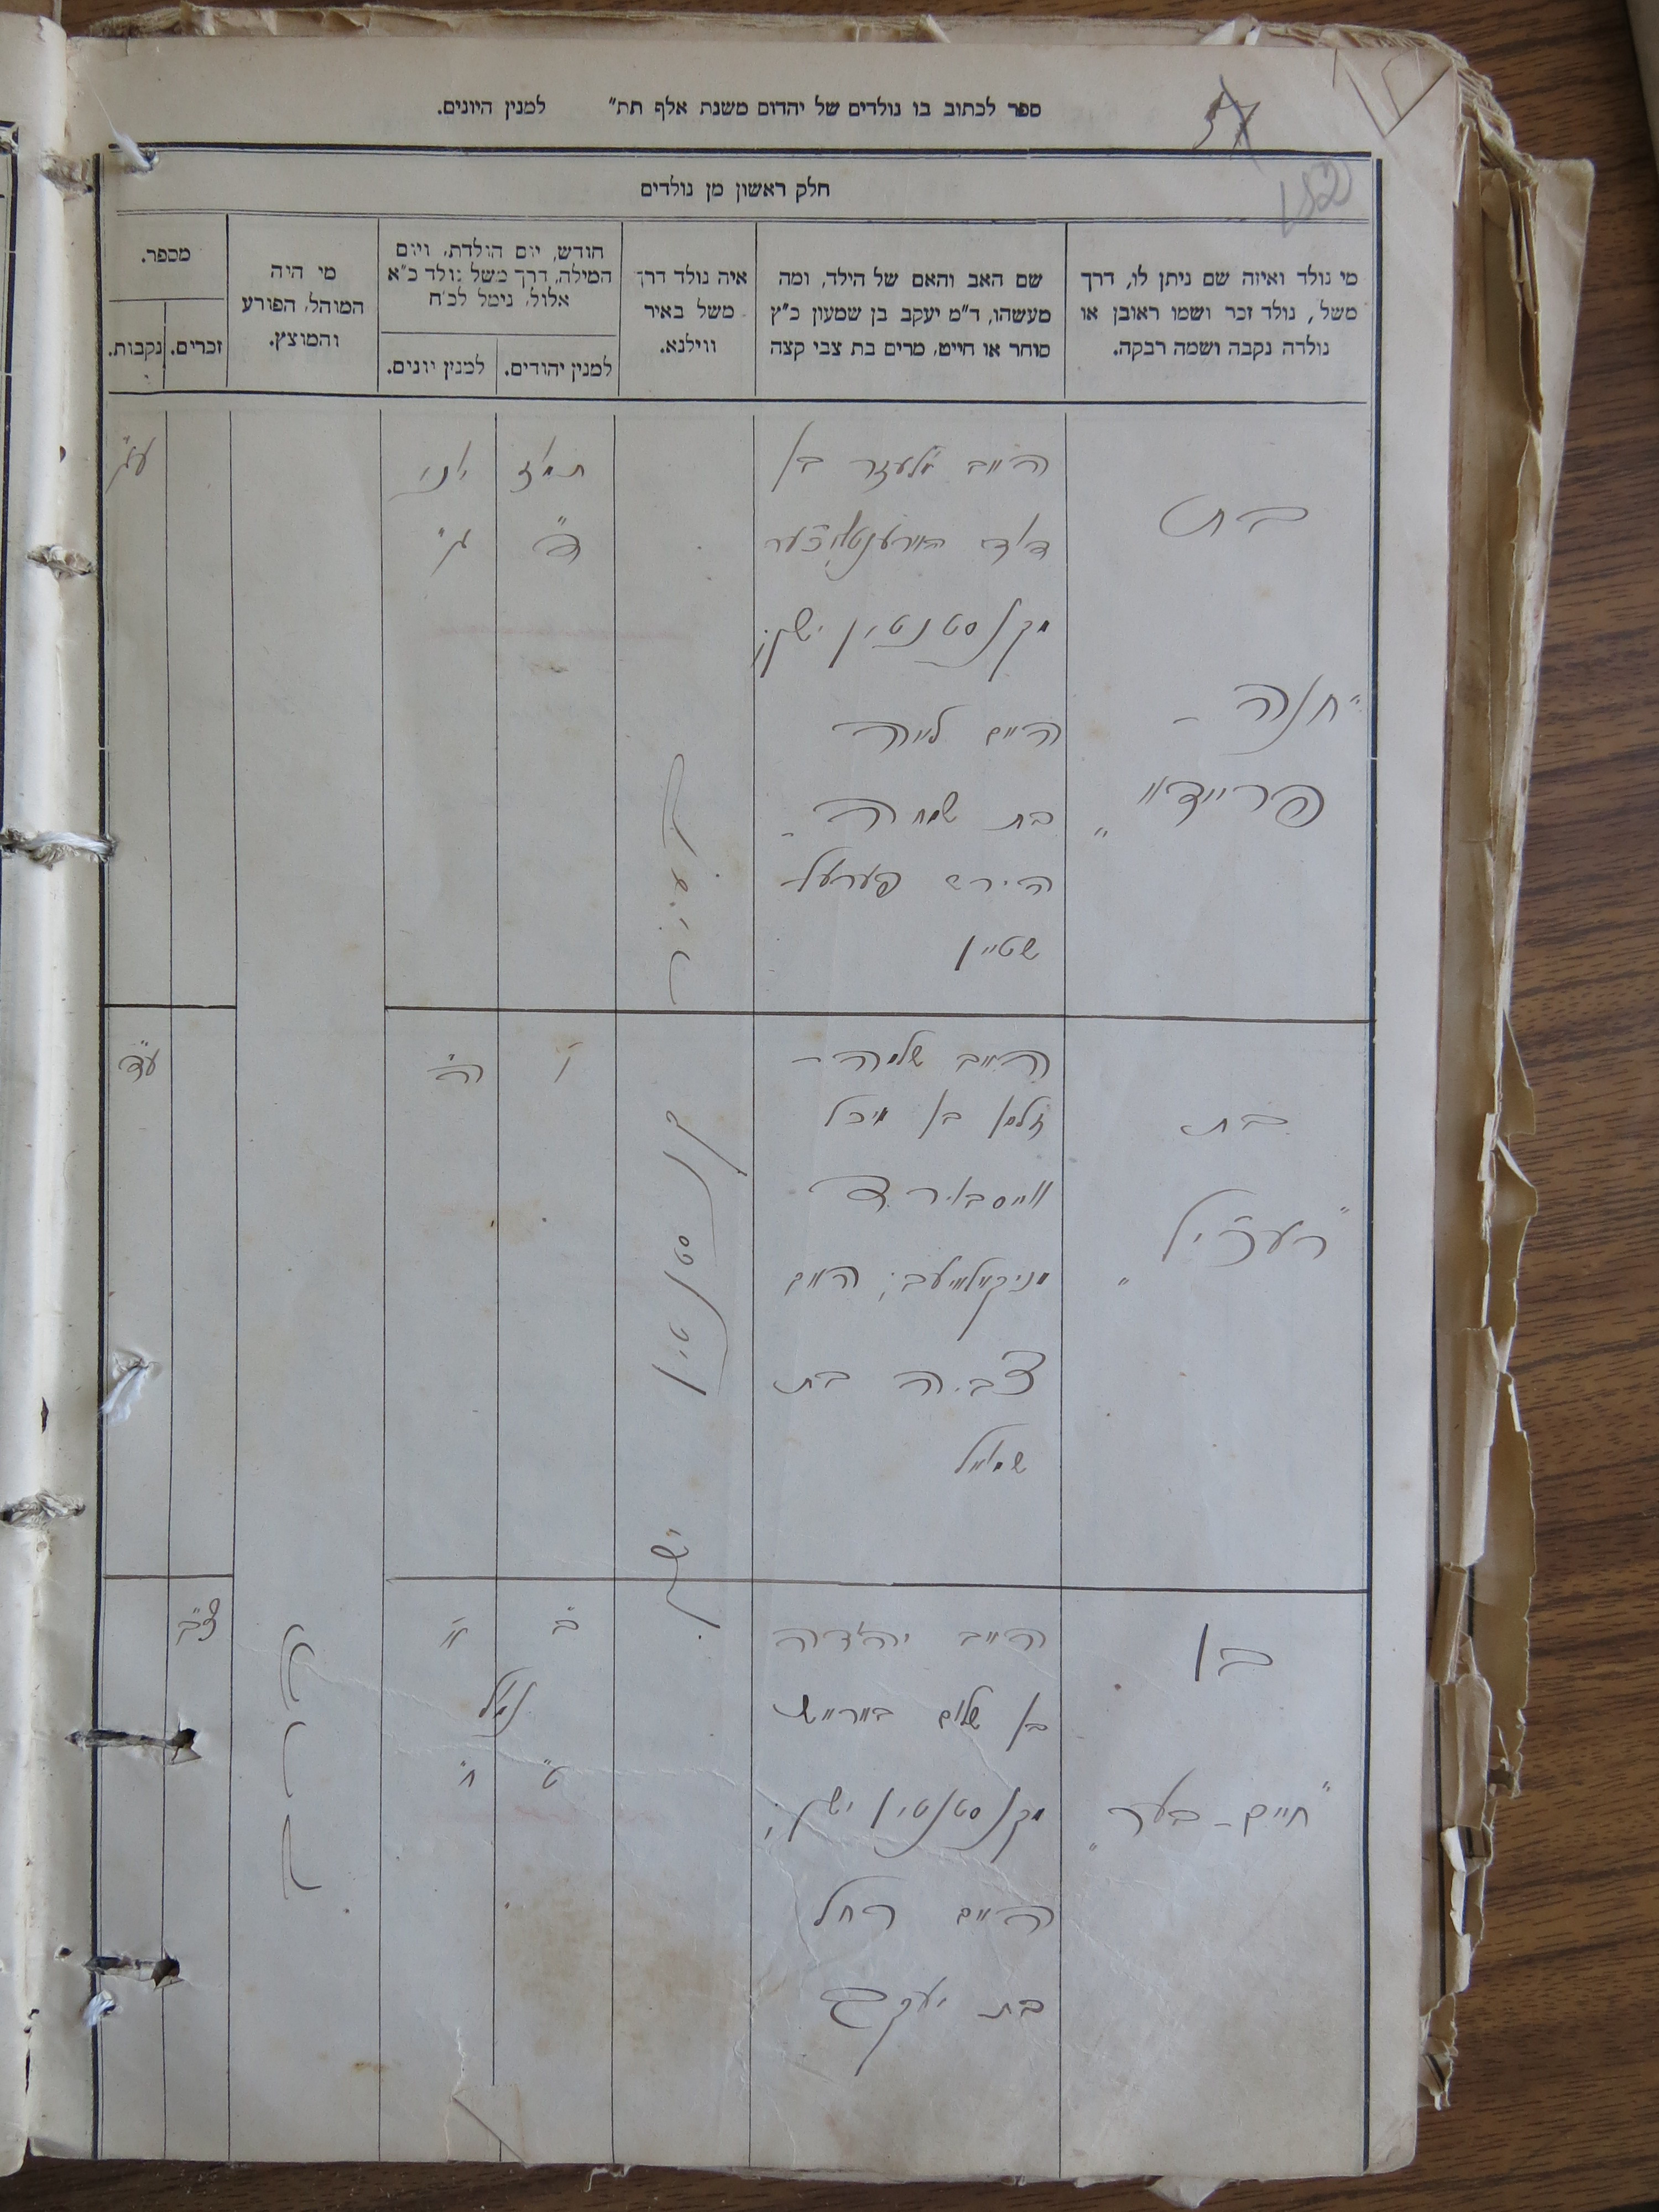 ספר לכתוב בו נולדים של יהדום משנת אלף תת״ למנין היונים.
57
182
חלק ראשון מן נולדים
מי נולד ואיזה שם ניתן לו, דרך
משל, נולד זכר ושמו ראובן או
נולדה נקבה ושמה רבקה.
שם האב והאם של הילד, ומה
מעשהו, ד״מ יעקב בן שמעון כ״ץ
סוחר או חייט, מרים בת צבי קצה
איה נולד דרך
משל באיר
ווילנא.
חודש, יום הולדת, ויום
המילה, דרך משל נולד כ״א
אלול, נימל לכ״ח
למנין יהודים.
למנין יונים.
מי היה
המוהל, הפורע
והמוצץ.
מספר.
זכרים.
נקבות.
בת
״חנה -
פריידא״
האב אלעזר בן
דוד
מקאנסטנטין ישן;
האם לאה
בת שמחה -
הירש פערעל-
שטיין
תמוז
ד״
יוני
ג״
ע״ג
בת
״רעזיל״
האב שלמה -
זלמן בן מיכל
ווייסבאירד
מניקאלאיעב; האם
צביה בת
שמואל
קאנסטנטין
ישן.
ו׳
ה״
ע״ד
בן
״חיים - בער״
האב יהודה
בן שלום
מקאנסטנטין ישן;
האם רחל
בת יעקב
ב״
א״
נמול
ט״
ח״
צ״ב